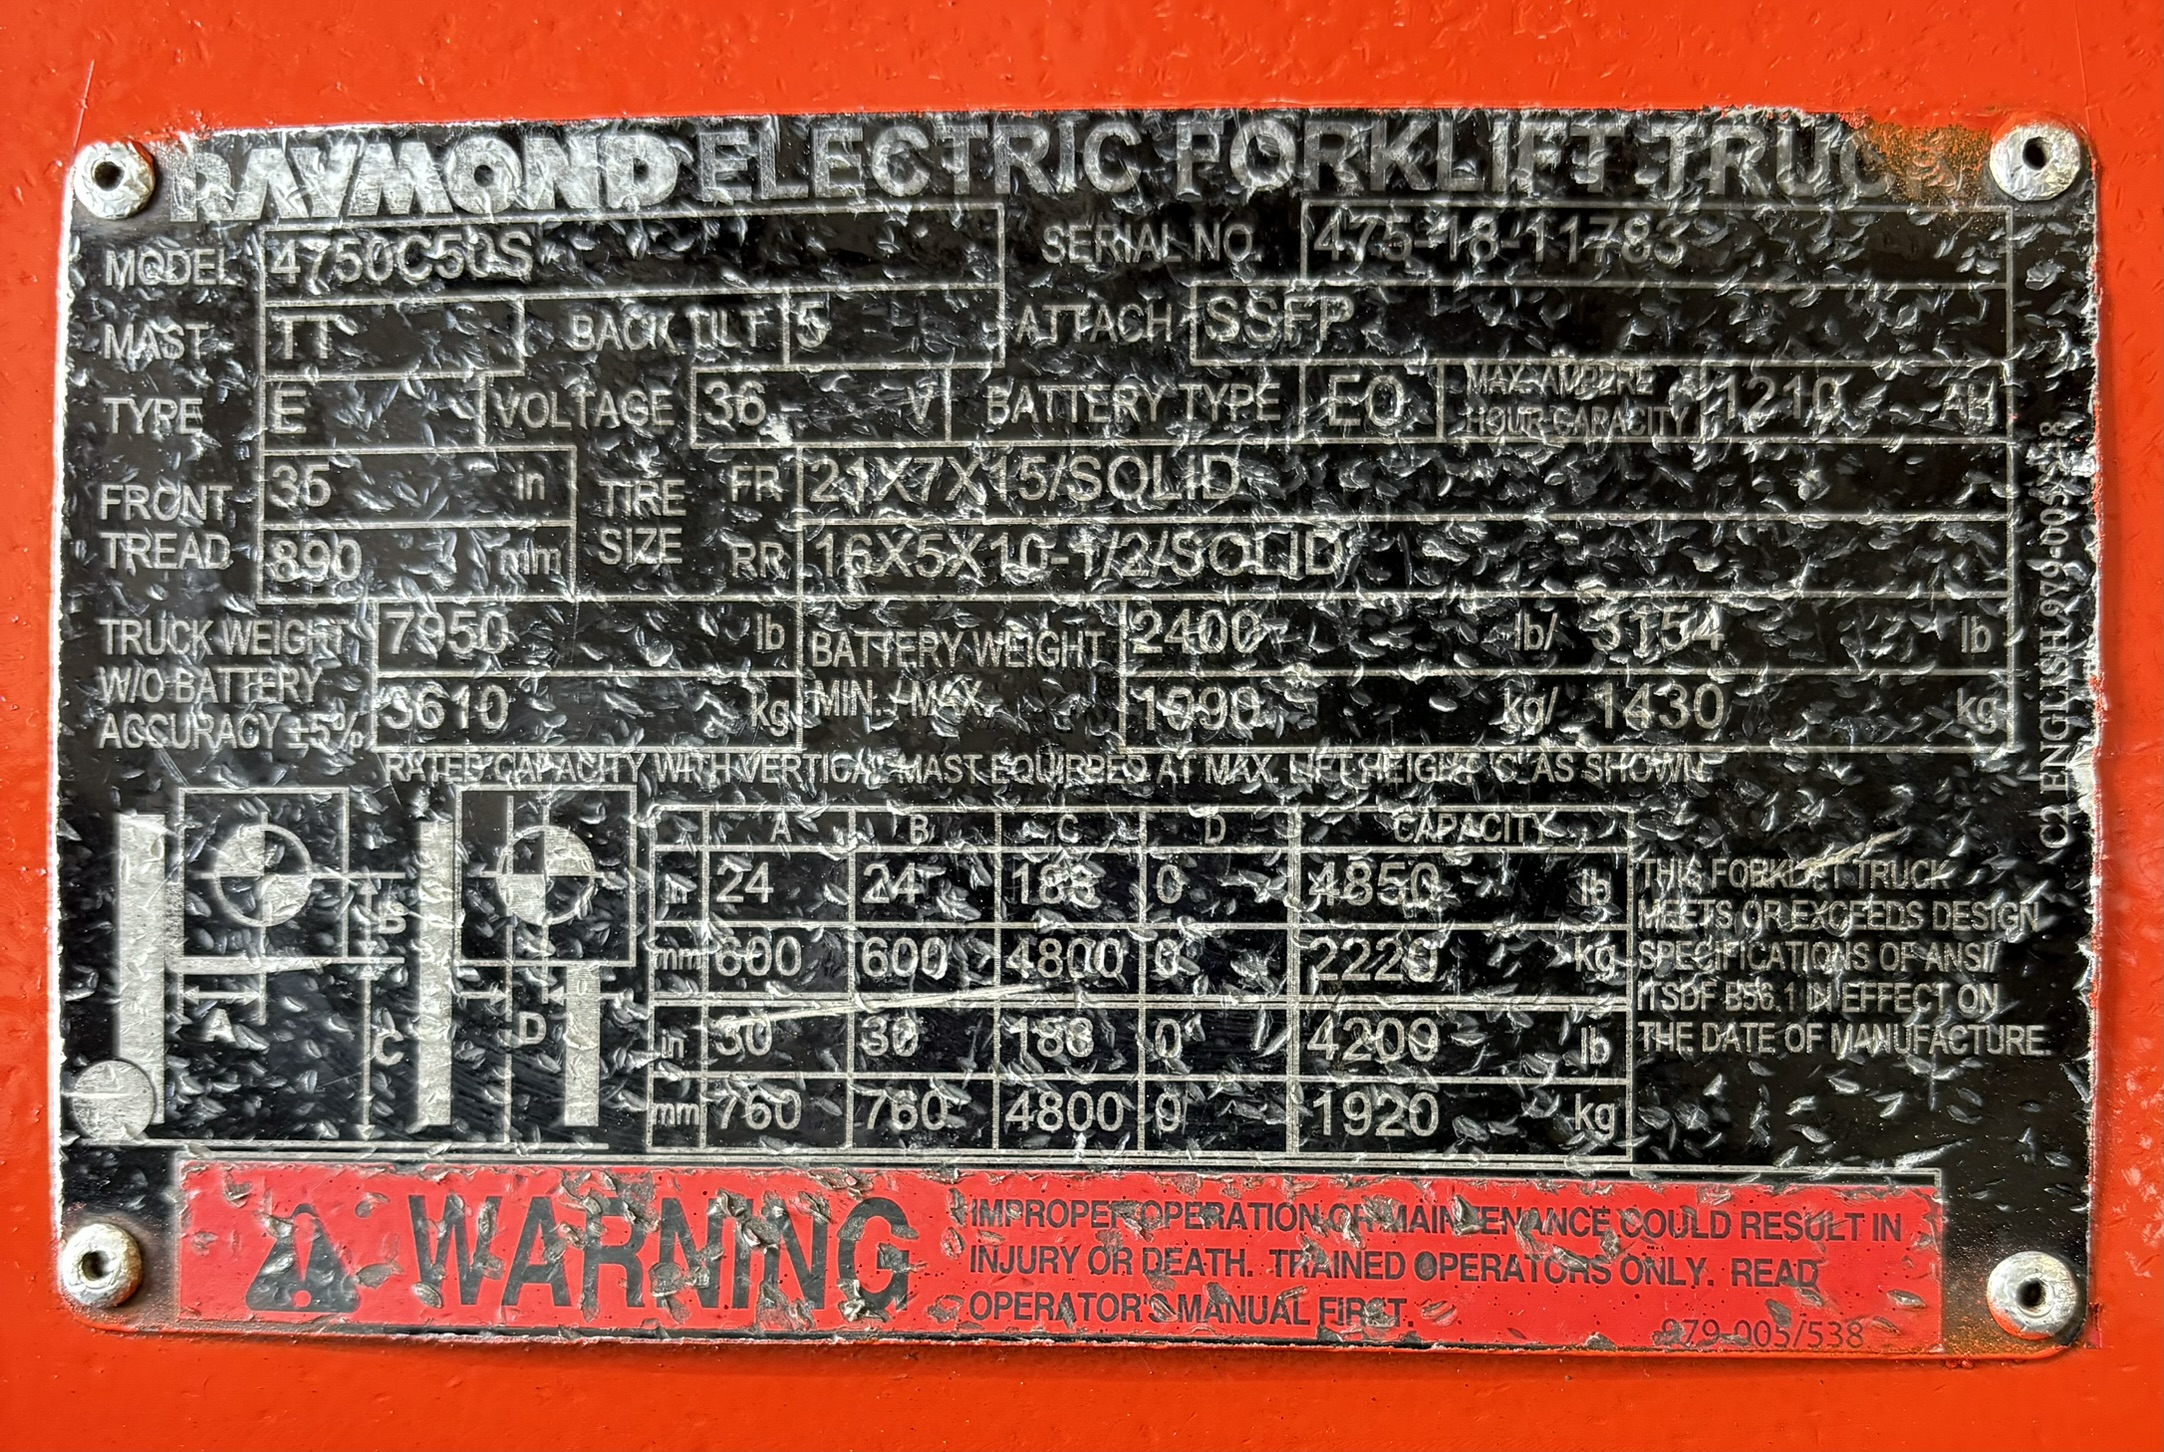 RAYMOND ELECTRIC FORKLIFT TRUCK
MODEL 4750C50S SERIAL NO. 475-18-11783
MAST TT BACK TILT 5 ATTACH SSFP
TYPE E VOLTAGE 36 V BATTERY TYPE EO MAX. AMPERE HOUR CAPACITY 1210 AH
FRONT TREAD 35 in TIRE SIZE FR 21X7X15/SOLID
890 mm RR 16X5X10-1/2/SOLID
TRUCK WEIGHT W/O BATTERY ACCURACY ±5% 7950 lb BATTERY WEIGHT MIN. / MAX. 2400 lb/ 3154 lb
3610 kg 1090 kg/ 1430 kg
RATED CAPACITY WITH VERTICAL MAST EQUIPPED AT MAX. LIFT HEIGHT 'C' AS SHOWN
A B C D CAPACITY
in 24 24 188 0 4850 lb
mm 600 600 4800 0 2220 kg
in 30 30 188 0 4200 lb
mm 760 760 4800 0 1920 kg
B
A
C
D
THIS FORKLIFT TRUCK
MEETS OR EXCEEDS DESIGN
SPECIFICATIONS OF ANSI/
ITSDF B56.1 IN EFFECT ON
THE DATE OF MANUFACTURE.
WARNING
IMPROPER OPERATION OR MAINTENANCE COULD RESULT IN
INJURY OR DEATH. TRAINED OPERATORS ONLY. READ
OPERATOR'S MANUAL FIRST.
979-005/538
C21 ENGLISH